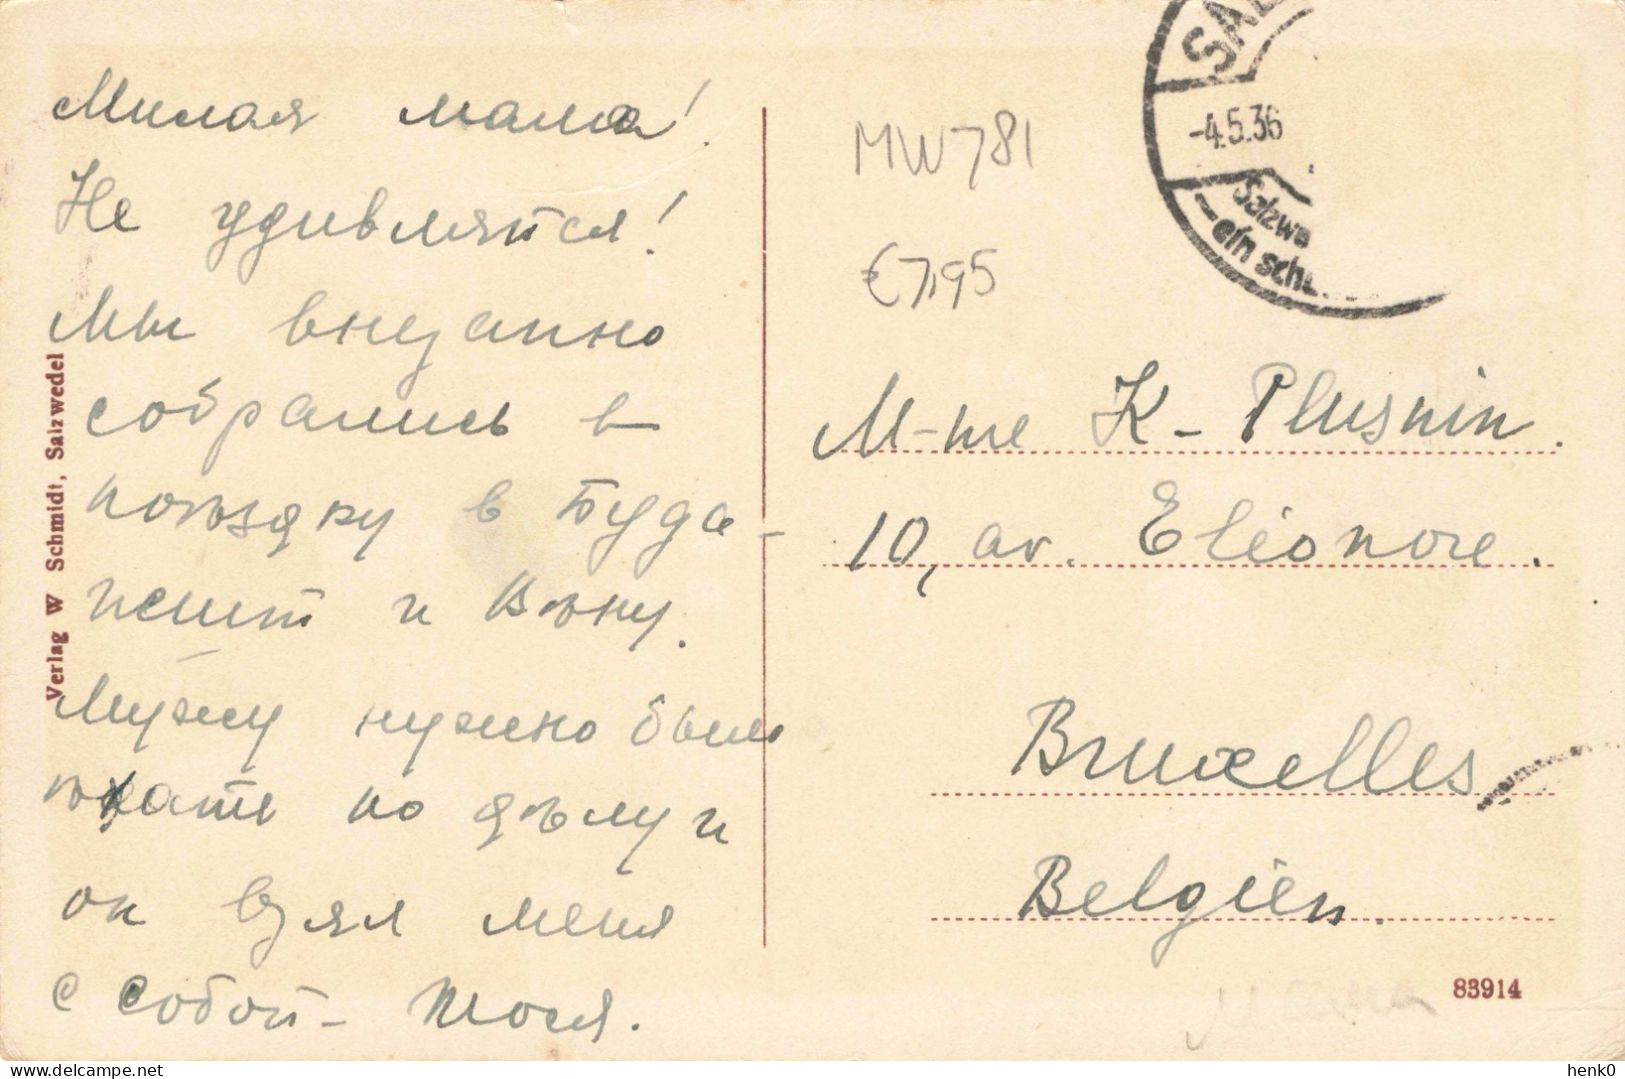 Милая мама!
Не удивляйся!
Мы внезапно
собрались в
поѣздку в Буда-
пешт и Вѣну.
Мужу нужно было
ѣхать по дѣлу и
он взял меня
с собой - Тюся.
Verlag W Schmidt, Salzwedel
MW781
€7,95
SAL
-4.5.36
Salzwe
ein sch
M-me K. Plusnin.
10, av. Eléonore.
Bruxelles
Belgien.
83914
delcampe.net
henk0